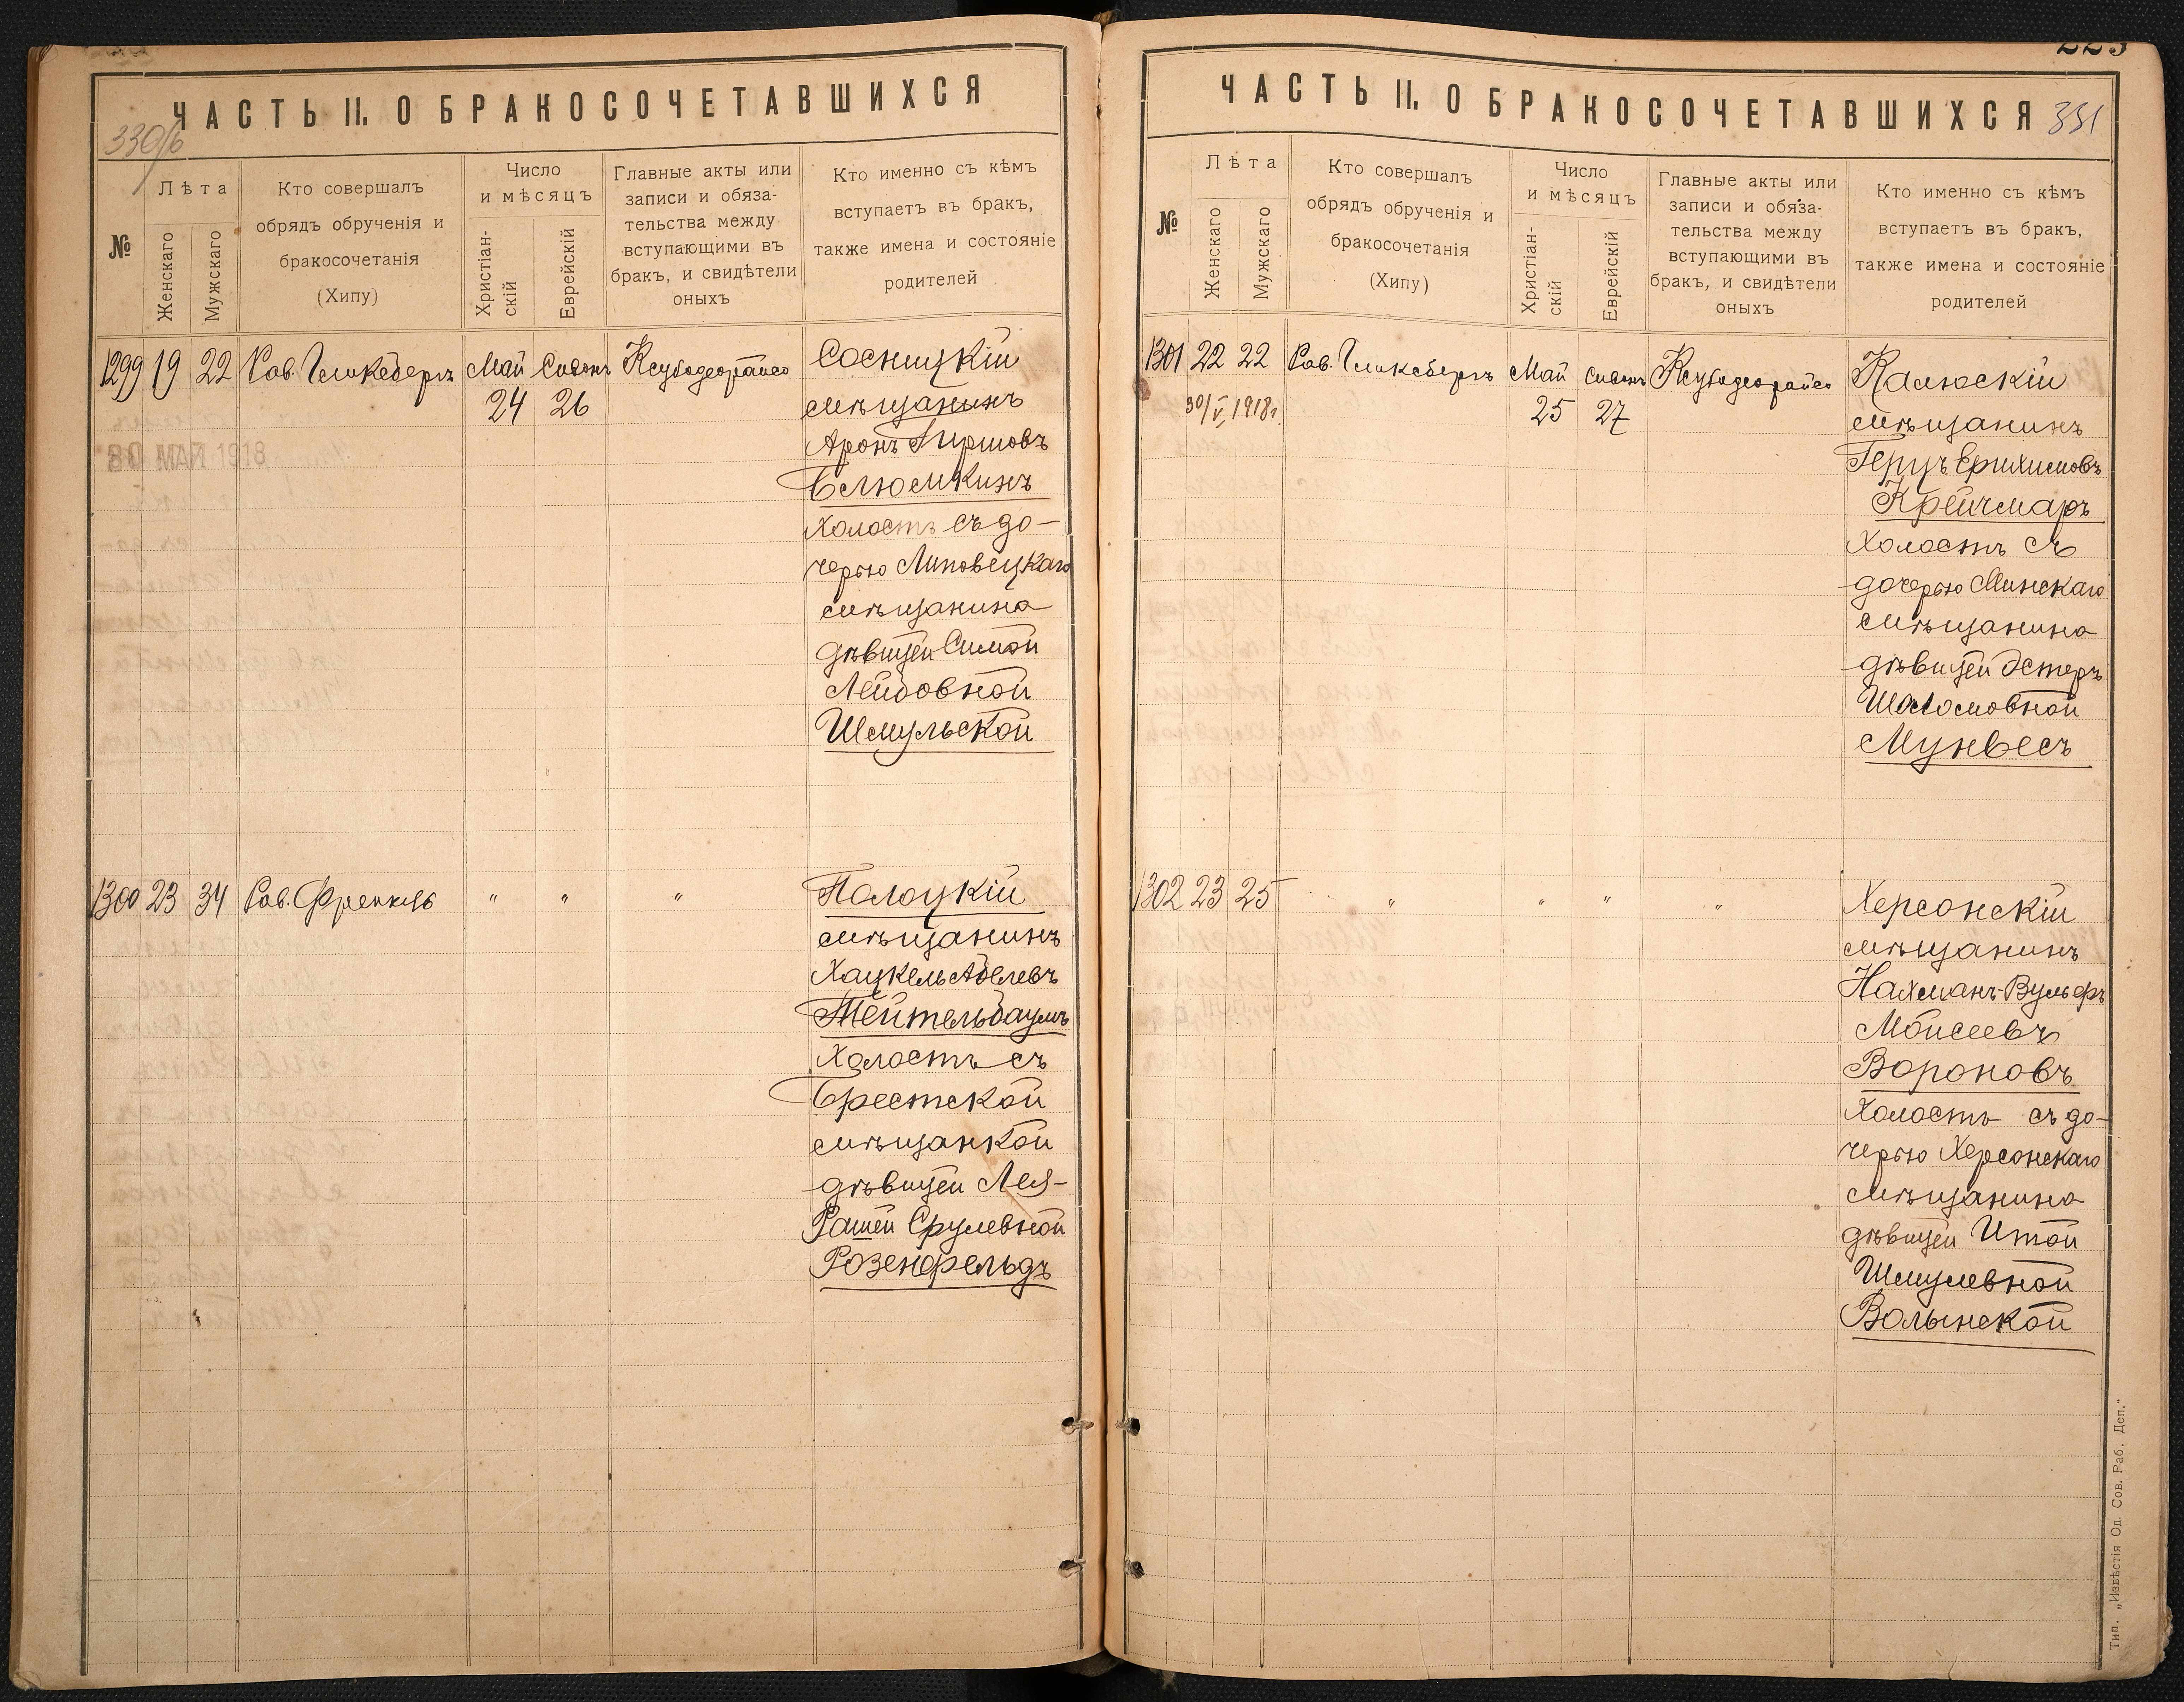 ЧАСТЬ II. О БРАКОСОЧЕТАВШИХСЯ
330/б
№
Лѣта
Женскаго
Мужскаго
Кто совершалъ
обрядъ обрученія и
бракосочетанія
(Хипу)
Число
и мѣсяцъ
Христіан-
скій
Еврейскій
Главные акты или
записи и обяза-
тельства между
вступающими въ
бракъ, и свидѣтели
оныхъ
Кто именно съ кѣмъ
вступаетъ въ бракъ,
также имена и состояніе
родителей
1299 19 22 Рав. Гликсбергъ Май Сивонъ Ксубодеорайсо
24 26
30 МАЙ 1918
Сосницкій
мѣщанинъ
Аронъ Гиршовъ
Блюмкинъ
холостъ съ до-
черью Липовецкаго
мѣщанина
дѣвицей Симой
Лейбовной
Шмульской
1300 23 34 Рав. Френкель " " "
Полоцкій
мѣщанинъ
Хацкель Абелевъ
Тейтельбаумъ
Холостъ съ
Брестской
мѣщанкой
дѣвицей Лея-
Рашей Срулевной
Розенфельдъ
223
ЧАСТЬ II. О БРАКОСОЧЕТАВШИХСЯ
331
№
Лѣта
Женскаго
Мужскаго
Кто совершалъ
обрядъ обрученія и
бракосочетанія
(Хипу)
Число
и мѣсяцъ
Христіан-
скій
Еврейскій
Главные акты или
записи и обяза-
тельства между
вступающими въ
бракъ, и свидѣтели
оныхъ
Кто именно съ кѣмъ
вступаетъ въ бракъ,
также имена и состояніе
родителей
1301 22 22 Рав. Гликсбергъ Май Сивонъ Ксубодеорайсо
30/V 1918г. 25 27
Калюскій
мѣщанинъ
Герцъ Ерихимовъ
Крейчмаръ
Холостъ съ
дочерью Минскаго
мѣщанина
дѣвицей Эстеръ
Шоломовной
Мунвесъ
1302 23 25 " " " "
Херсонскій
мѣщанинъ
Нахманъ-Вульфъ
Мойсеевъ
Вороновъ
Холостъ съ до-
черью Херсонскаго
мѣщанина
дѣвицей Итой
Шмулевной
Волынской
Тип. „Извѣстія Од. Сов. Раб. Деп."